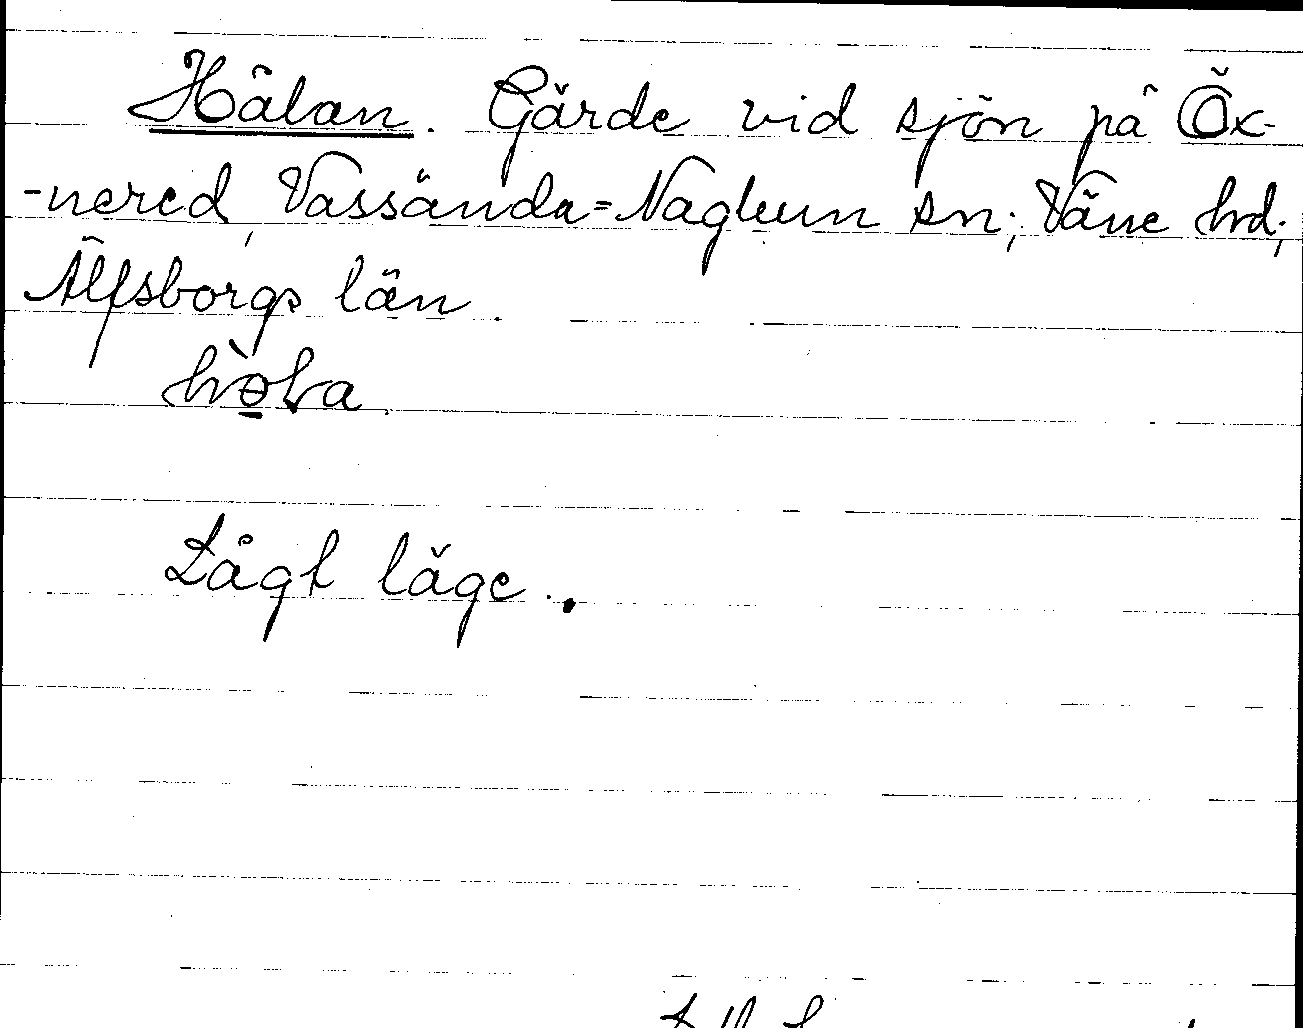 Hålan. Gärde vid sjön på Öx-
-nered, Vassända=Naglum sn; Väne hd;
Älfsborgs län.
Lågt läge.